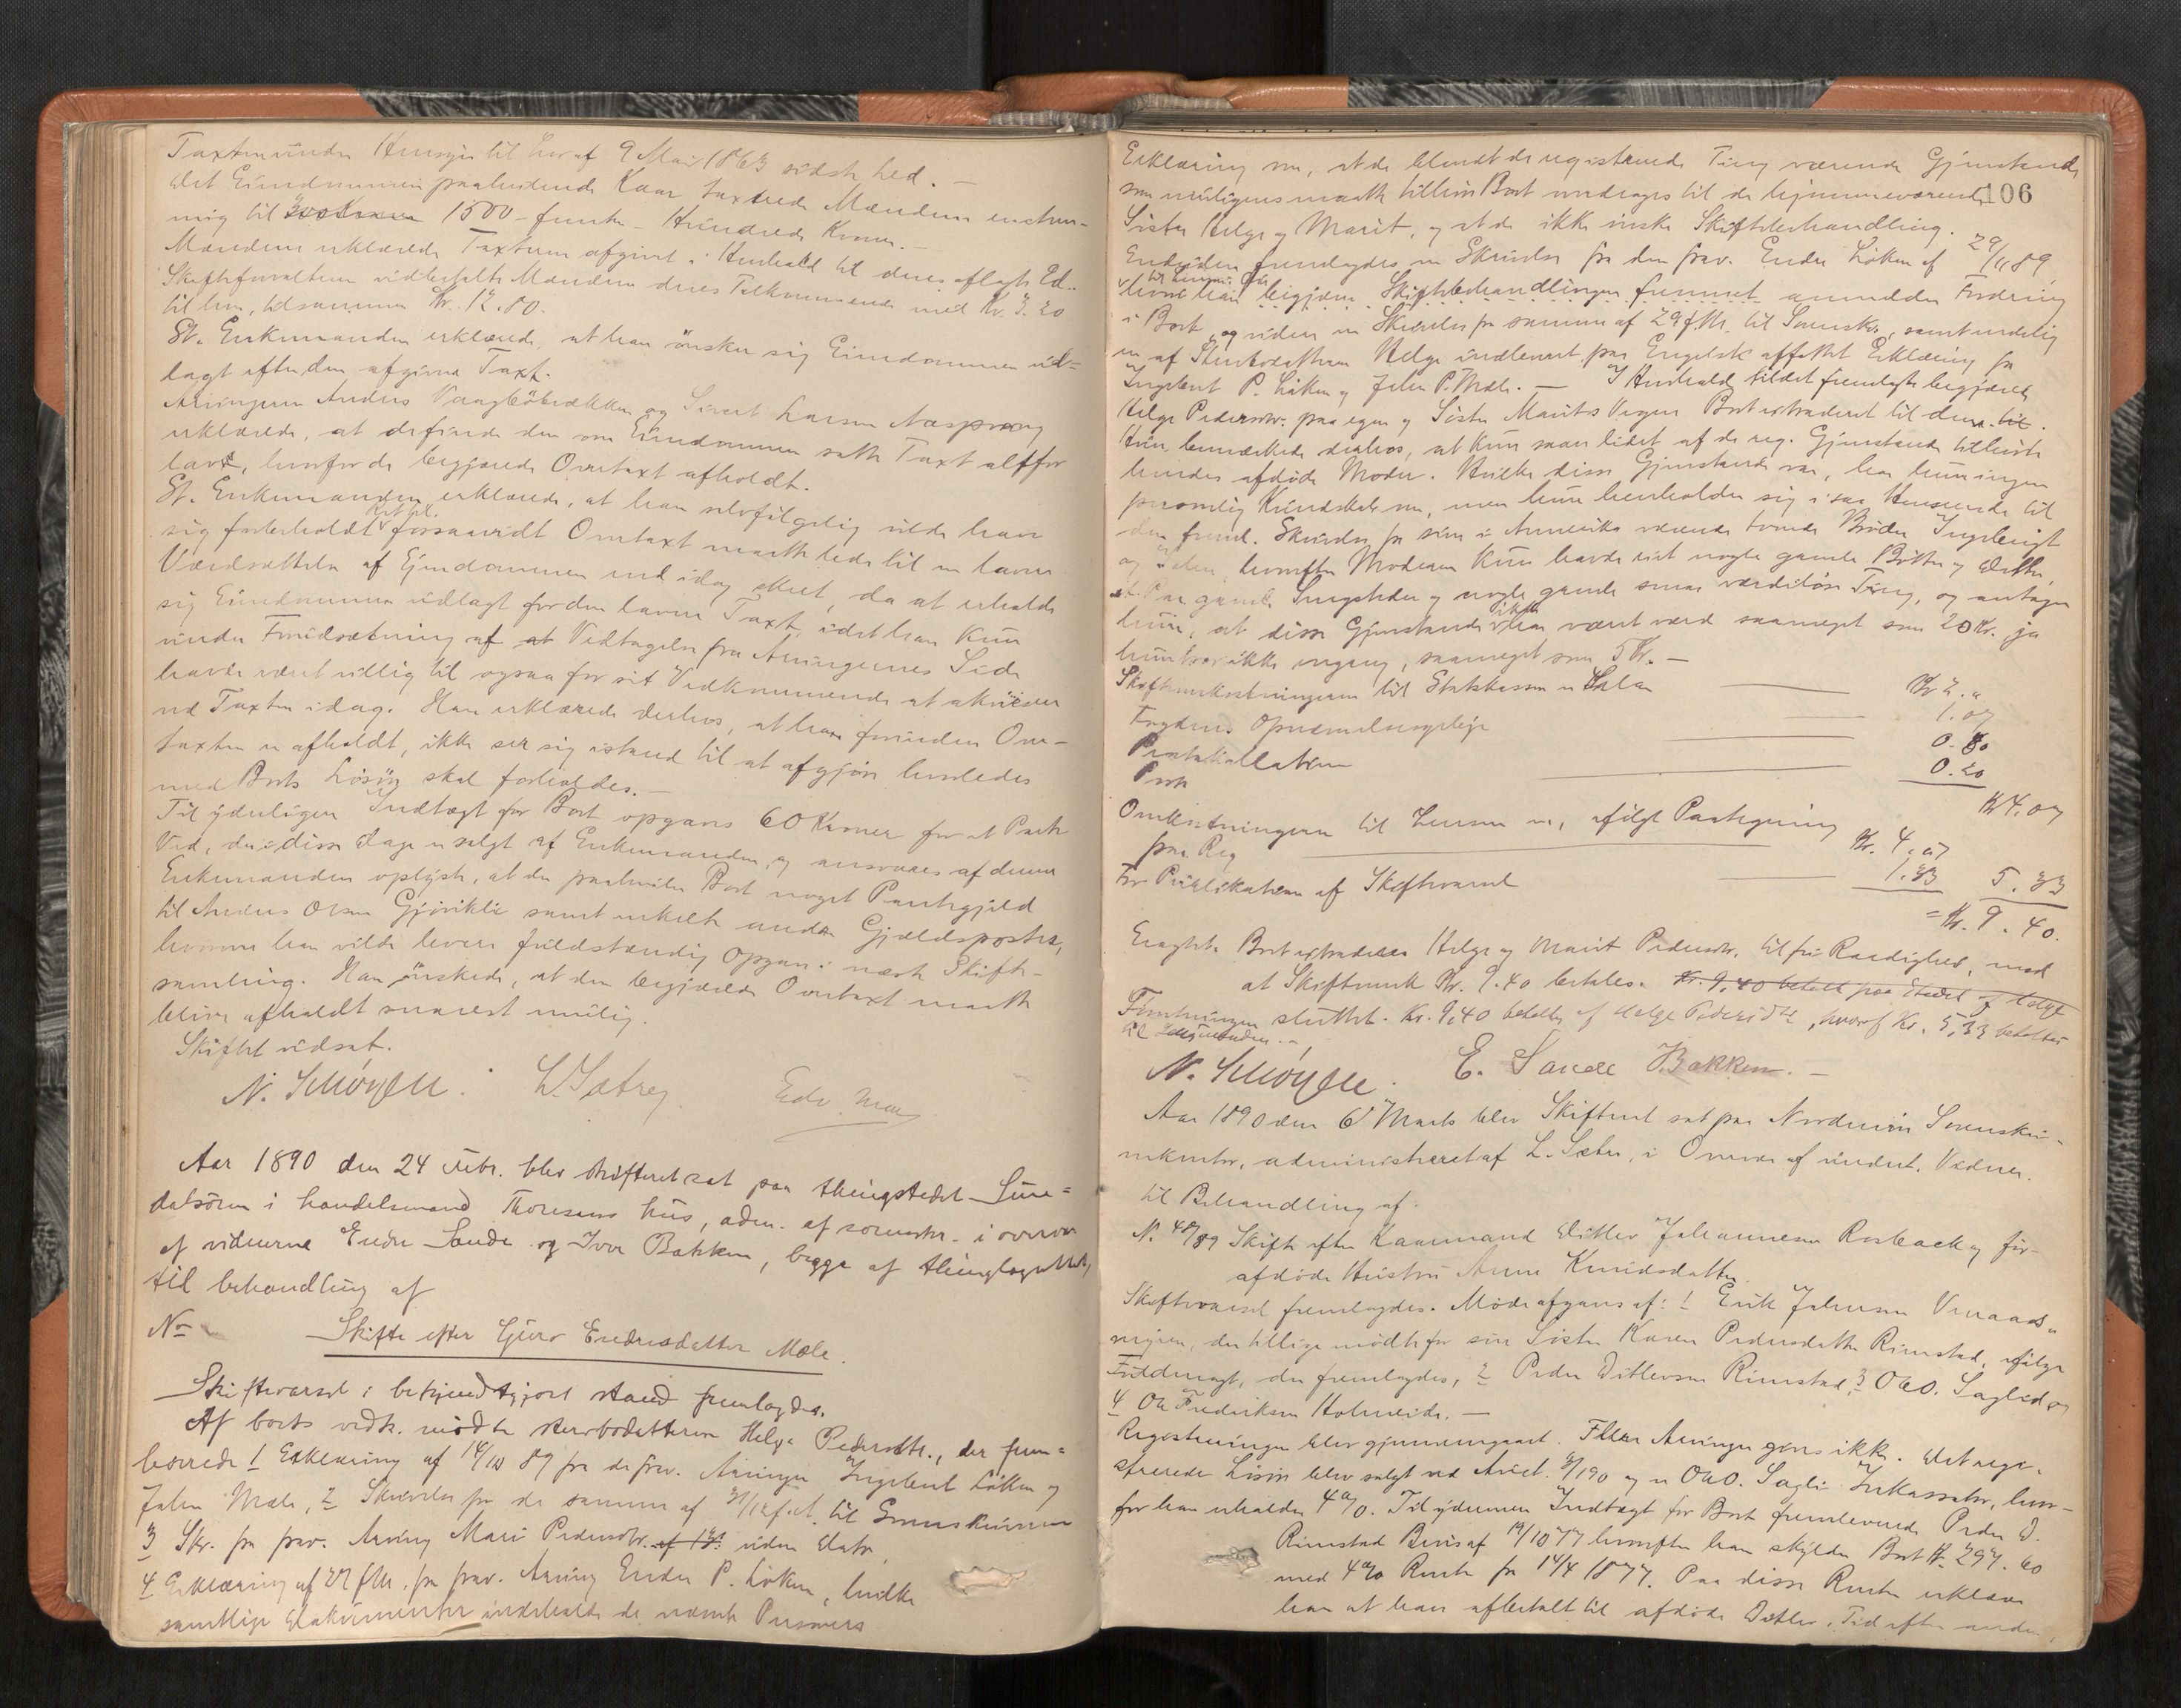 Taxtmænden Hensyn til Lov af 9 Mai 1863 sidste Led. –
Det Eiendommen paahvilende Kaar taxerede Mændene enstem-
mig til 1500 – femten – Hundrede Kroner. –
Mændene erklærede Taxten afgivet i Henhold til deres aflagte Ed.
Skifteforvalteren udbetalte Mændene deres Tilkommende med Kr. 3.20
til hver, tilsammen Kr. 12.80.
St. Enkemanden erklærede, at han ønsker sig Eiendommen ud-
lagt efter den afgivne Taxt.
Arvingerne Anders Vaagbøbækken og Sivert Larsen Aaspvang
erklærede, at de finde den over Eiendommen satte Taxt altfor
lavt, hvorfor de begjærede Overtaxt afholdt.
St. Enkemanden erklærede, at han selvfølgelig vilde have
sig forbeholdt Ret til, forsaavidt Overtaxt maatte lede til en lavere
Værdsættelse af Ejendommen end idag skeet, da at erholde
sig Eiendommen udlagt for den lavere Taxt, idet han kun
under Forudsætning af at Vedtagelse fra Arvingernes Side
havde været villig til ogsaa for sit Vedkommende at akviescere
ved Taxten idag. Han erklærede derhos, at han forinden Over-
taxten er afholdt, ikke ser sig istand til at afgjøre hvorledes
med Boets Løsøre skal forholdes. –
Til yderligere Indtægt for Boet opgaves 60 Kroner for et Parti
Ved, der i disse Dage er solgt af Enkemanden, og ansvares af denne
Enkemanden oplyste, at der paahviler Boet noget Pantegjæld
til Anders Olsen Gjøvikli samt enkelte andre Gjældsposter,
hvorom han vilde levere fuldstændig Opgave i næste Skifte-
samling. Han ønskede, at den begjærede Overtaxt maatte
blive afholdt snarest mulig.
Skiftet udsat.
N. Schøyen. L. Sætrey. Edv. Moe
Aar 1890 den 24 Febr. blev skifteret sat paa thingstedet Sure=
dalsøren i handelsmand Thoresens hus, adm. af sorenskr. i overvær
af vidnerne Endre Sande og Iver Bakken, begge af thinglaget,
til behandling af
No Skifte efter Guro Endresdatter Mæle.
Skiftevarsel i bekjendtgjort stand fremlagdes.
Af boets vedk. mødte stervbodatteren Helge Pedersdtr., der frem=
leverede 1 Erklæring af 14/10 89 fra de frav. Arvinger Ingebret Løken og
John Mæle, 2 Skrivelse fra de samme af 31/12 f. A. til Sorenskriveren
3 Skr. fra frav. Arving Mari Pedersdtr. uden Dato,
4 Erklæring af 27 f.M. fra frav. Arving Endre P. Løken, hvilke
samtlige Dokumenter indeholde de nævnte Personers
106
Erklæring om, at de blandt de registrerede Ting værende Gjenstande
som muligens maatte tilhøre Boet overdrages til de hjemmeværende
Søstre Helge og Marit, og at de ikke ønske Skiftebehandling.
Endvidere fremlagdes en Skrivelse fra den frav. Endre Løken af 29/11 89
hvori han begjærer Skiftebehandlingen fremmet anmelder Fordring
i Boet, og videre en Skrivelse fra samme af 29 f.M. til Sorenskr., samt endelig
en af Stervbodatteren Helge indleveret paa Engelsk affattet Erklæring fra
Ingebret P. Løken og John P. Mæle. – I Henhold til det fremlagte begjærede
Helge Pedersdtr. paa egne og Søster Marits Vegne Boet extraderet til dem.
Hun bemærkede derhos, at kun saare lidet af de reg. Gjenstande tilhørte
hendes afdøde Moder. Hvilke disse Gjenstande var, har hun ingen
personlig Kundskab om, men hun henholder sig i saa Henseende til
den freml. Skrivelse fra sine i Amerika værende tvende Brødre Ingebrigt
og John, hvorefter Moderen kun havde eiet nogle gamle Bøtter og Daller,
et Par gamle Sengklæder og nogle gamle smaa værdiløse Ting, og antager
hun, at disse Gjenstande ikke har været værd saameget som 20 Kr. ja
hun tror ikke engang, saameget som 5 Kr. –
Skifteomkostningerne til Statskassen er Salær Kr 2. "
Fogdens Opnævnelsesgebyr 1.07
Protokollation 0.80
Porto 0.20
Kr 4,07
Omkostningerne til Lensm. er, ifølge Paategning
paa Reg Kr. 4.07
For Publikation af Skiftevarsel 1.33 5.33
= Kr. 9.40.
Eragtet: Boet extraderes Helge og Marit Pedersdtr. til fri Raadighed, mod
at Skifteomk Kr. 9.40 betales. Kr. 9.40 betalt paa Stedet af Helge
Forretningen sluttet. Kr. 9,40 betaltes af Helge Pedersdtr, hvoraf Kr. 5,33 betaltes
til Lensmanden. –
N. Schøyen. E. Sande I. Bakken. –
Aar 1890 den 6 Marts blev Skifteret sat paa Nordmøre Sorenskri-
verkontor, administreret af L. Sæter, i Overvær af undert. Vidner.
til Behandling af:
N. 48/89 Skifte efter Kaarmand Ditlev Johannesen Rosback og før-
afdøde Hustru Anne Knudsdatter.
Skiftevarsel fremlagdes. Møde afgaves af: 1 Erik Johnsen
der tillige mødte for sin Søster Karen Pedersdatter Rimstad, ifølge
Fuldmagt, der fremlagdes, 2 Peder Ditlevsen Rimstad, 3 O O. Saglid og
4 Ole Fredriksen Holmeide. –
Registreringen blev gjennemgaaet. Flere Arvinger gives ikke. Det regi-
strerede Løsøre blev solgt ved Aukt. 8/1 90 og er O O. Sagli Inkassator, hvor-
for han erholder 4%. Til ydermere Indtægt for Boet fremleverede Peder D.
Rimstad Bevis af 19/10 77 hvorefter han skylder Boet Kr. 297.60
med 4% Rente fra 14/4 1877. Paa disse Renter erklærer
han at have afbetalt til afdøde Ditlev, Tid efter anden,